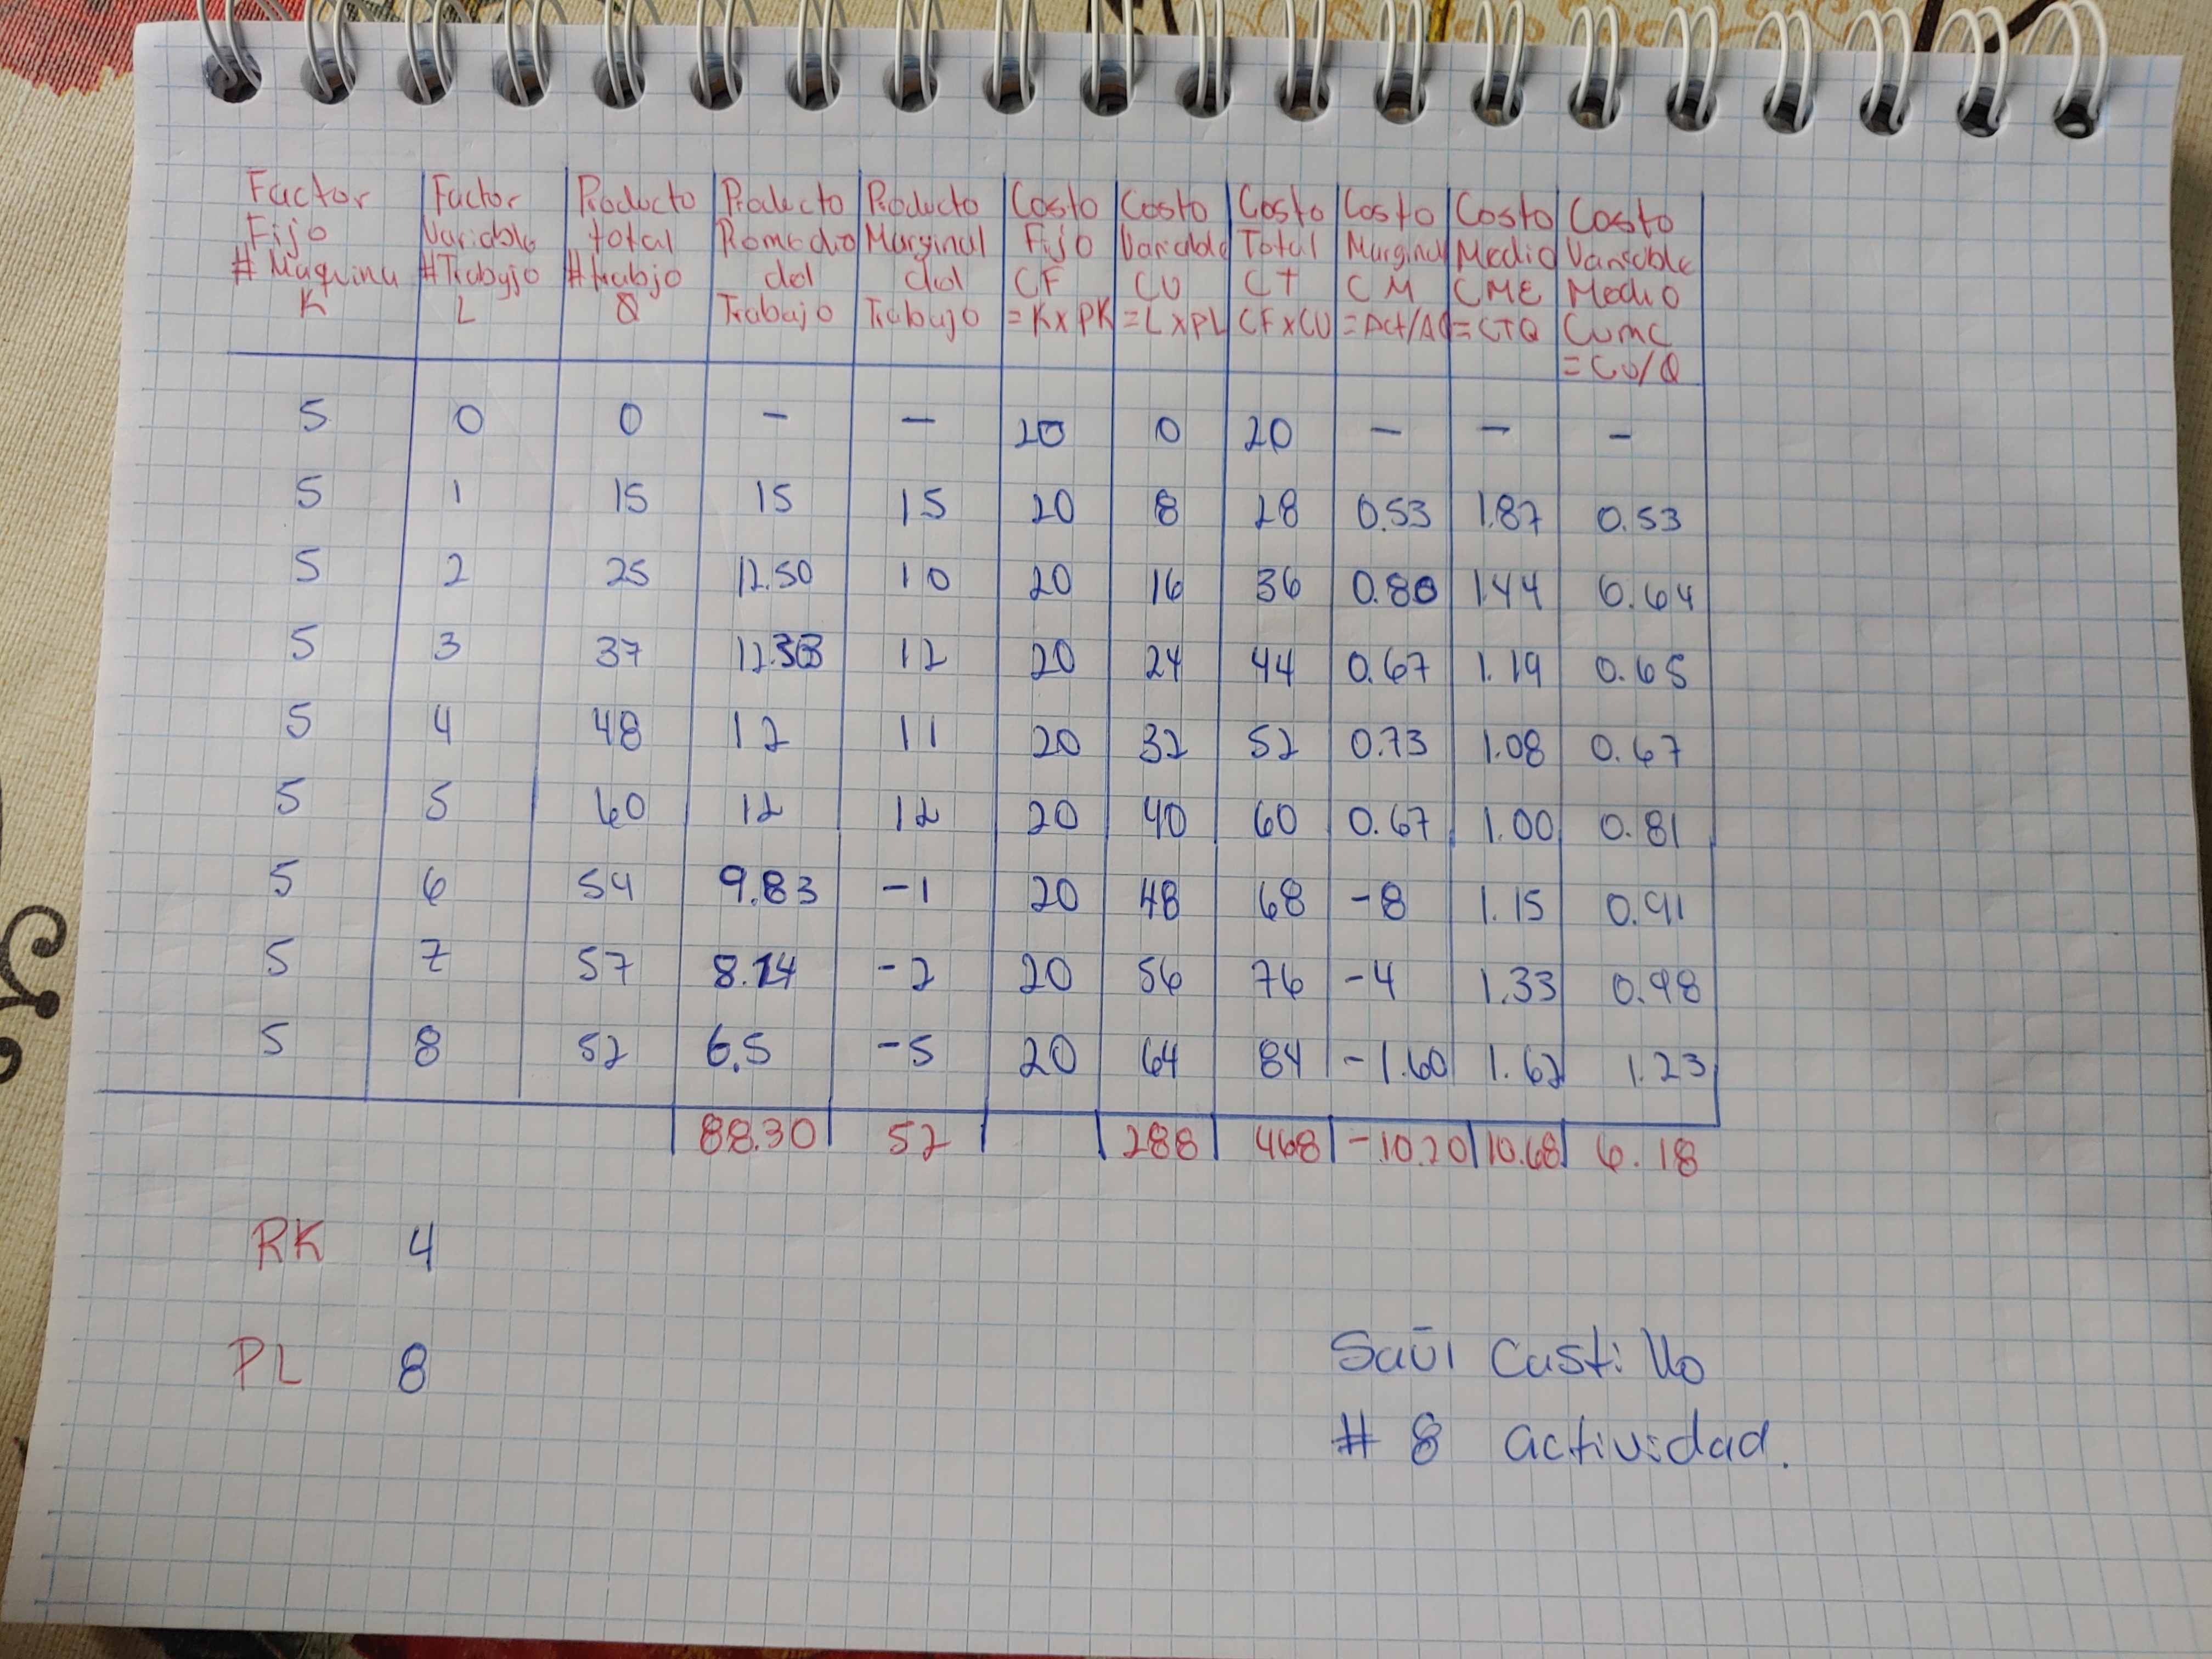 Factor Factor Producto Producto Producto Costo Costo Costo Costo Costo Costo
Fijo Variable total Romedio Marginal Fijo Variable Total Marginal Medio Variable
# Maquina #Trabajo #trabjo del del CF CU CT CM CME Medio
K L Q Trabajo Trabajo =KxPK =LxPL CFxCU =ACt/AQ =CTQ CUMC
=CU/Q
5 0 0 - - 20 0 20 - - -
5 1 15 15 15 20 8 28 0.53 1.87 0.53
5 2 25 12.50 10 20 16 36 0.80 1.44 0.64
5 3 37 12.33 12 20 24 44 0.67 1.19 0.65
5 4 48 12 11 20 32 52 0.73 1.08 0.67
5 5 60 12 12 20 40 60 0.67 1.00 0.81
5 6 54 9.83 -1 20 48 68 -8 1.15 0.91
5 7 57 8.14 -2 20 56 76 -4 1.33 0.98
5 8 52 6.5 -5 20 64 84 -1.60 1.62 1.23
88.30 52 288 468 -10.20 10.68 6.18
RK 4
PL 8
Saúl Castillo
# 8 actividad.